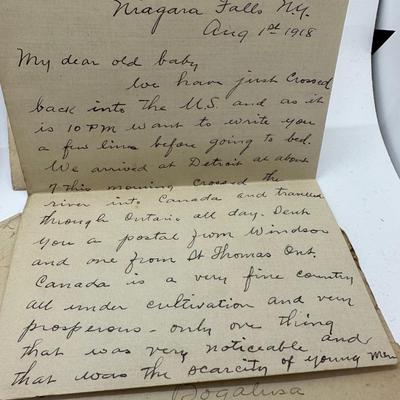 Niagara Falls N.Y.
Aug 1st 1918
My dear old baby
We have just crossed
back into the U.S. and as it
is 10 PM want to write you
a few lines before going to bed.
We arrived at Detroit at about
7 this morning crossed the
river into Canada and traveled
through Ontario all day. Sent
you a postal from Windsor
and one from St Thomas Ont.
Canada is a very fine country
all under cultivation and very
prosperous - only one thing
that was very noticeable and
that was the scarcity of young men
Bogalusa